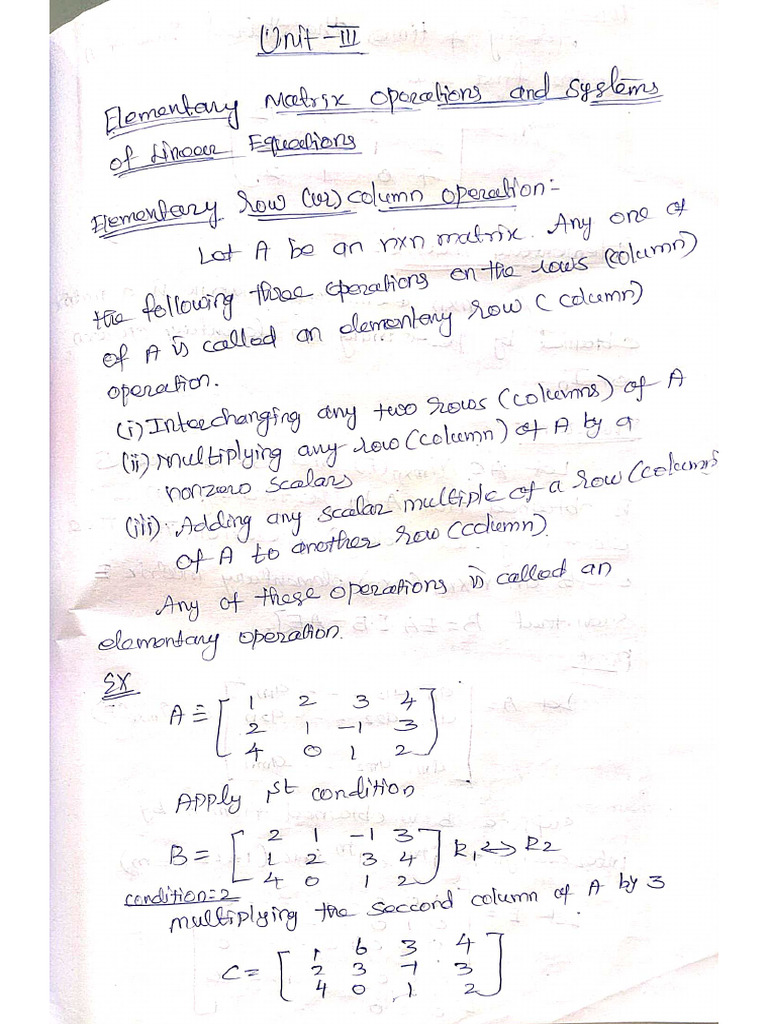 Unit-III
Elementary Matrix operations and Systems
of Linear Equations
Elementary row (or) column operation:-
Let A be an nxn matrix. Any one of
the following three operations on the rows (column)
of A is called an elementary row (column)
operation.
(i) Interchanging any two rows (columns) of A
(ii) Multiplying any row (column) of A by a
nonzero scalars
(iii) Adding any scalar multiple of a row (column
of A to another row (column).
Any of these operations is called an
elementary operation.
EX
A ≡ [ 1 2 3 4
2 1 -1 3
4 0 1 2 ]
Apply 1st condition
B = [ 2 1 -1 3
1 2 3 4
4 0 1 2 ] R1 ↔ R2
condition=2
multiplying the seccond column of A by 3
C = [ 1 6 3 4
2 3 -1 3
4 0 1 2 ]